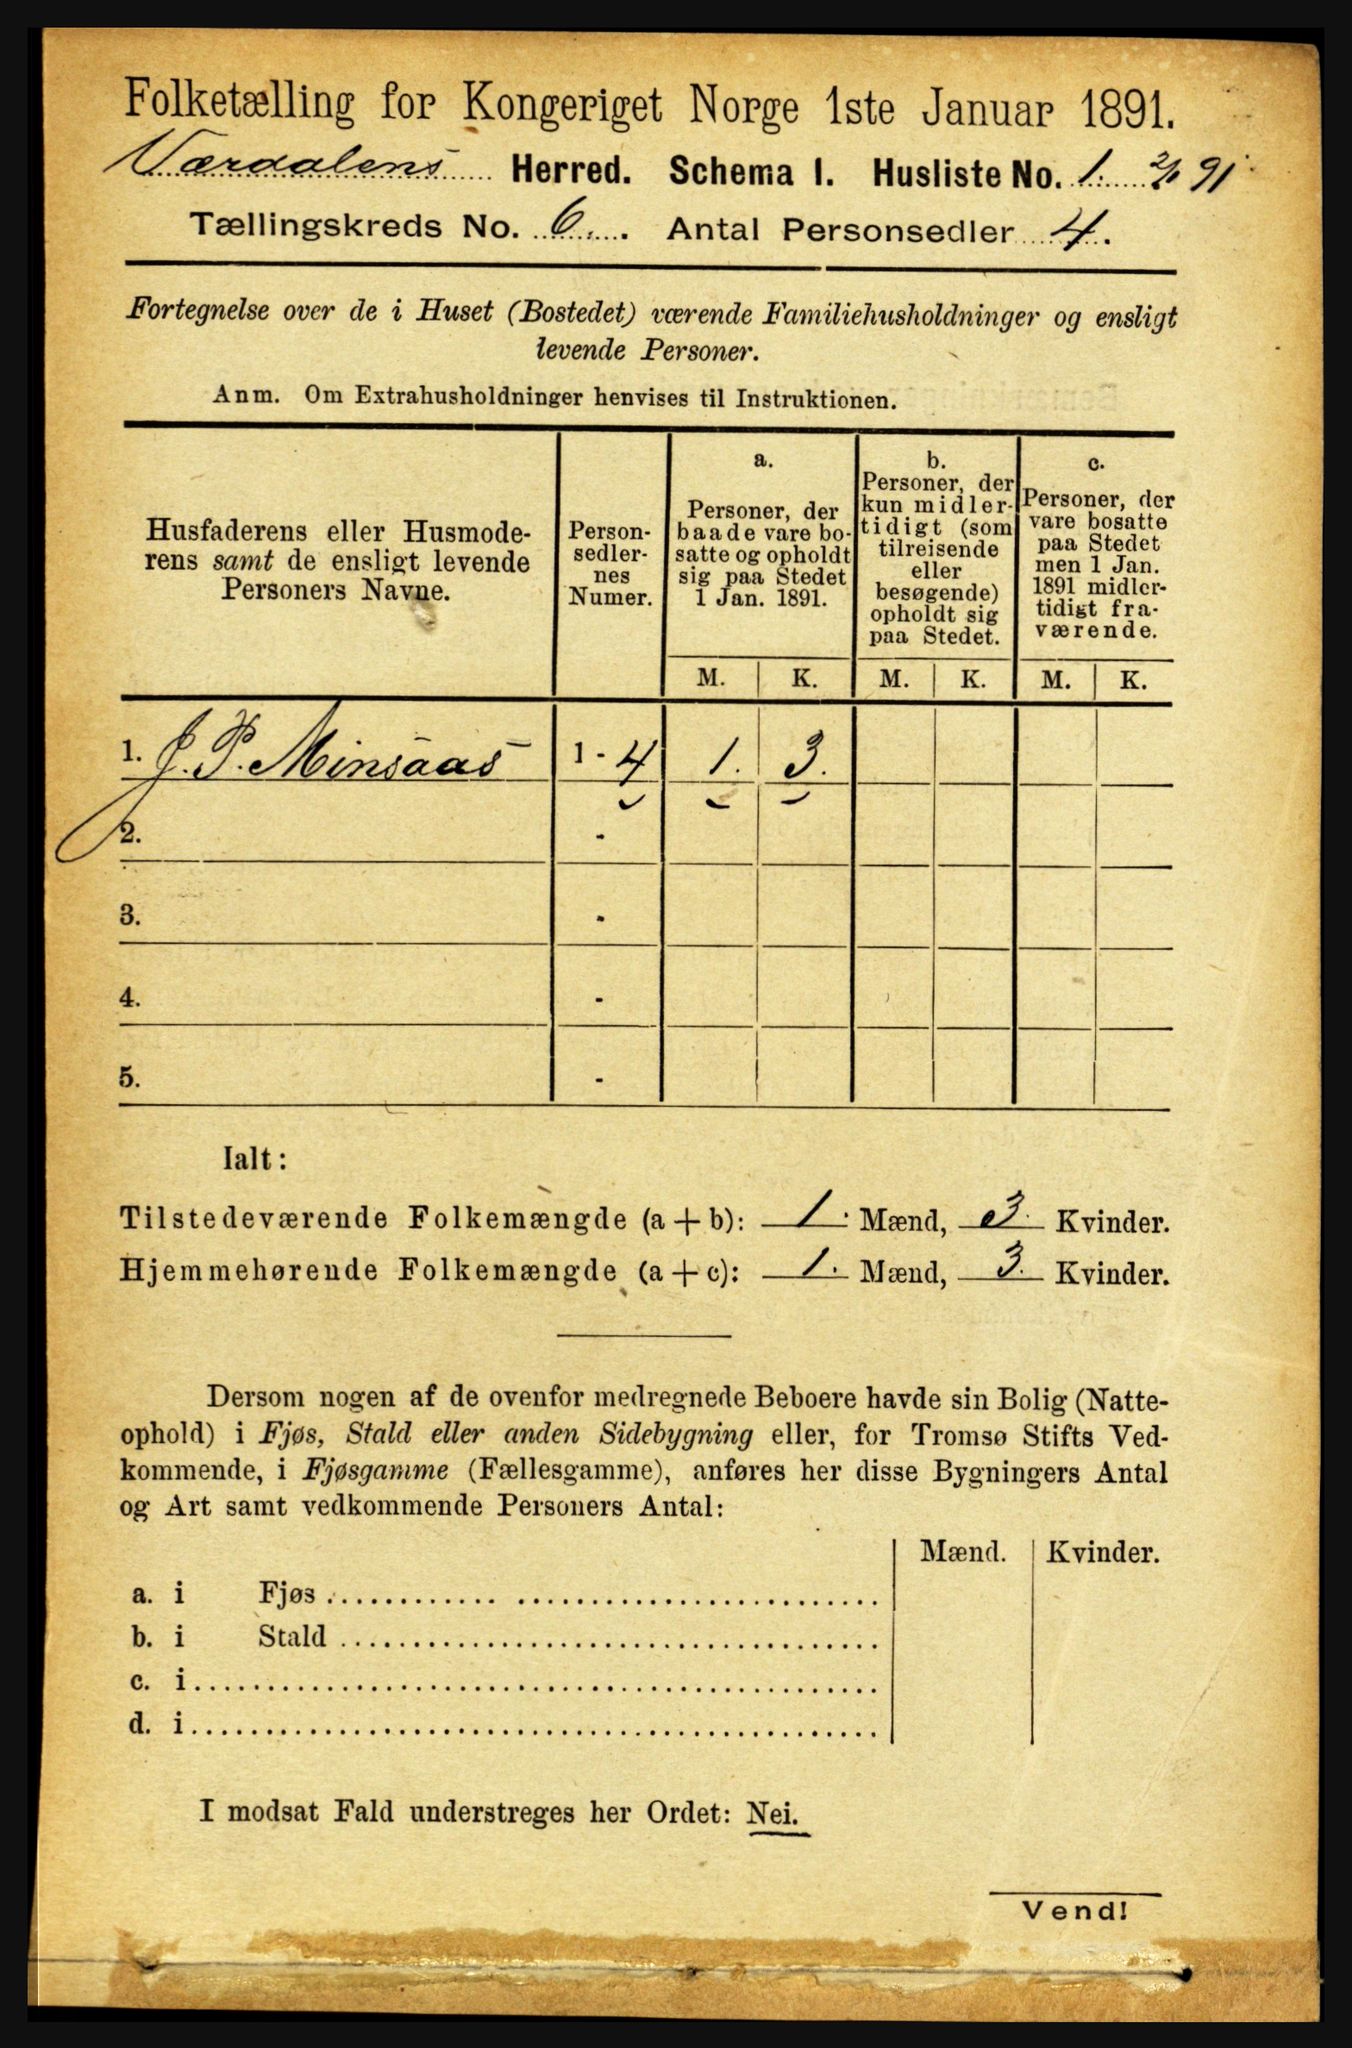 Folketælling for Kongeriget Norge 1ste Januar 1891.
Værdalens Herred. Schema 1. Husliste No. 1. 2/1 91
Tællingskreds No. 6. Antal Personsedler 4.
Fortegnelse over de i Huset (Bostedet) værende Familiehusholdninger og ensligt
levende Personer.
Anm. Om Extrahusholdninger henvises til Instruktionen.
Husfaderens eller Husmode-
rens samt de ensligt levende
Personers Navne.
Person-
sedler-
nes
Numer.
a.
Personer, der
baade vare bo-
satte og opholdt
sig paa Stedet
1 Jan. 1891.
b.
Personer, der
kun midler-
tidigt (som
tilreisende
eller
besøgende)
opholdt sig
paa Stedet.
c.
Personer, der
vare bosatte
paa Stedet
men 1 Jan.
1891 midler-
tidigt fra-
værende.
M. K. M. K. M. K.
1. J. P. Minsaas 1 - 4 1. 3.
2. -
3. -
4. -
5. -
Ialt:
Tilstedeværende Folkemængde (a + b): 1. Mænd, 3. Kvinder.
Hjemmehørende Folkemængde (a + c): 1. Mænd, 3. Kvinder.
Dersom nogen af de ovenfor medregnede Beboere havde sin Bolig (Natte-
ophold) i Fjøs, Stald eller anden Sidebygning eller, for Tromsø Stifts Ved-
kommende, i Fjøsgamme (Fællesgamme), anføres her disse Bygningers Antal
og Art samt vedkommende Personers Antal:
Mænd. Kvinder.
a. i Fjøs
b. i Stald
c. i
d. i
I modsat Fald understreges her Ordet: Nei.
Vend!